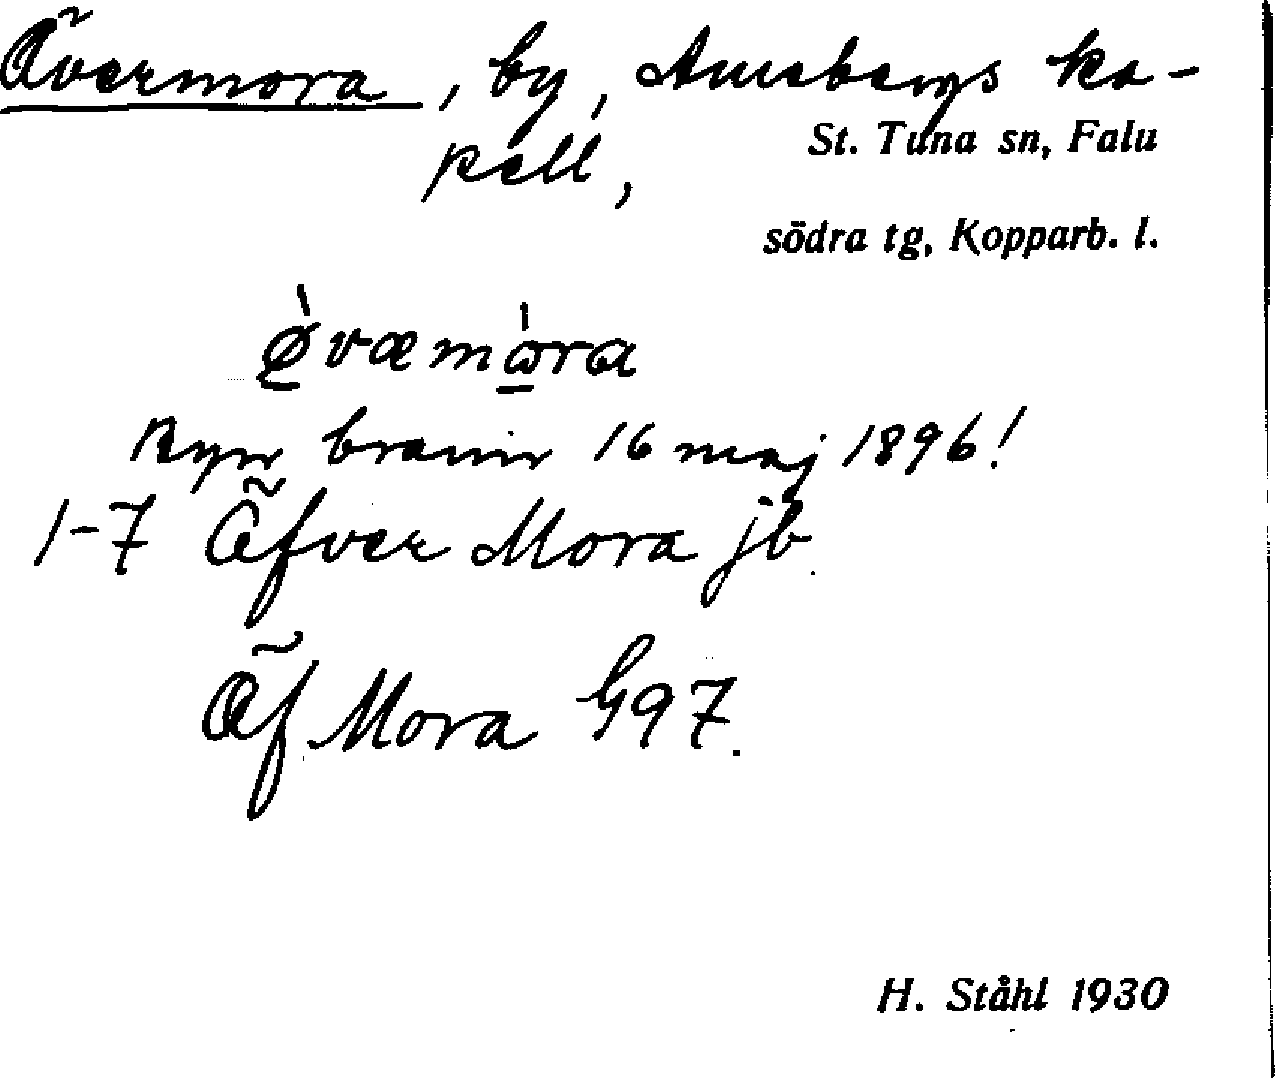 Övermora, by, Amsbergs ka-
pell,
St. Tuna sn, Falu
södra tg, Kopparb. l.
Byn brann 16 maj 1896!
1-7 Öfver Mora jb.
Öf Mora G97.
H. Ståhl 1930